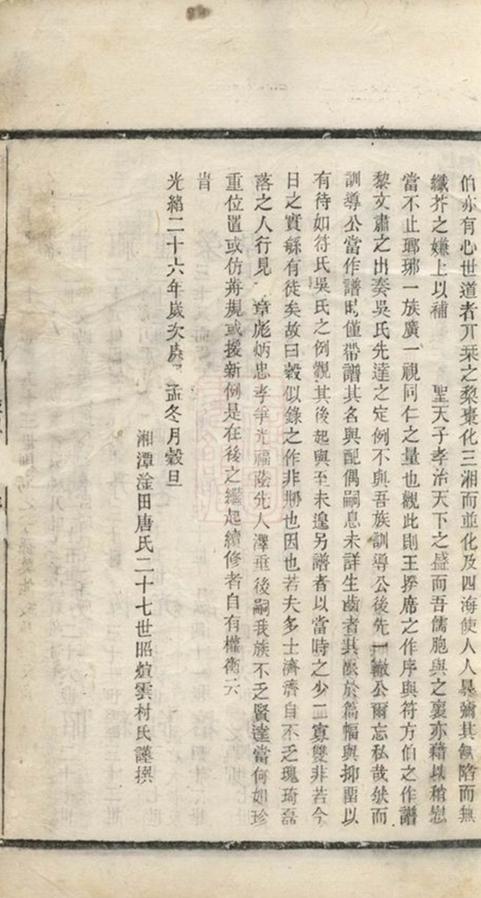 伯亦有心世道者刊棗之棃棗化三湘而並化及四海使人人暑彌其缺陷而無
纖芥之嫌上以補 聖天子孝治天下之盛而吾儒胞與之襄亦藉以稍慰
當不止瑯琊一族廣一視同仁之量也觀此則王揆席之作序與符方伯之作譜
黎文肅之出奏吳氏先達之定例不與吾族訓導公後先一轍公爾忘私哉然而
訓導公當作譜時僅帶譜其名與配偶嗣息未詳生歯者其限於篇幅與抑留以
有待如符氏吳氏之例觀其後起與至未遑另譜者以當時之少而寡雙非若今
日之實繇有徒矣故曰穀似錄之作非刱也因也若夫多士濟濟自不乏瑰琦磊
落之人行見 章彪炳忠孝爭光福蔭先人澤垂後嗣我族不乏賢達當何如珍
重位置或仿舊規或援新例是在後之繼起續修者自有權衡云
旹
光緒二十六年歲次庚 孟冬月穀旦
湘潭淦田唐氏二十七世昭煊雲村氏謹撰